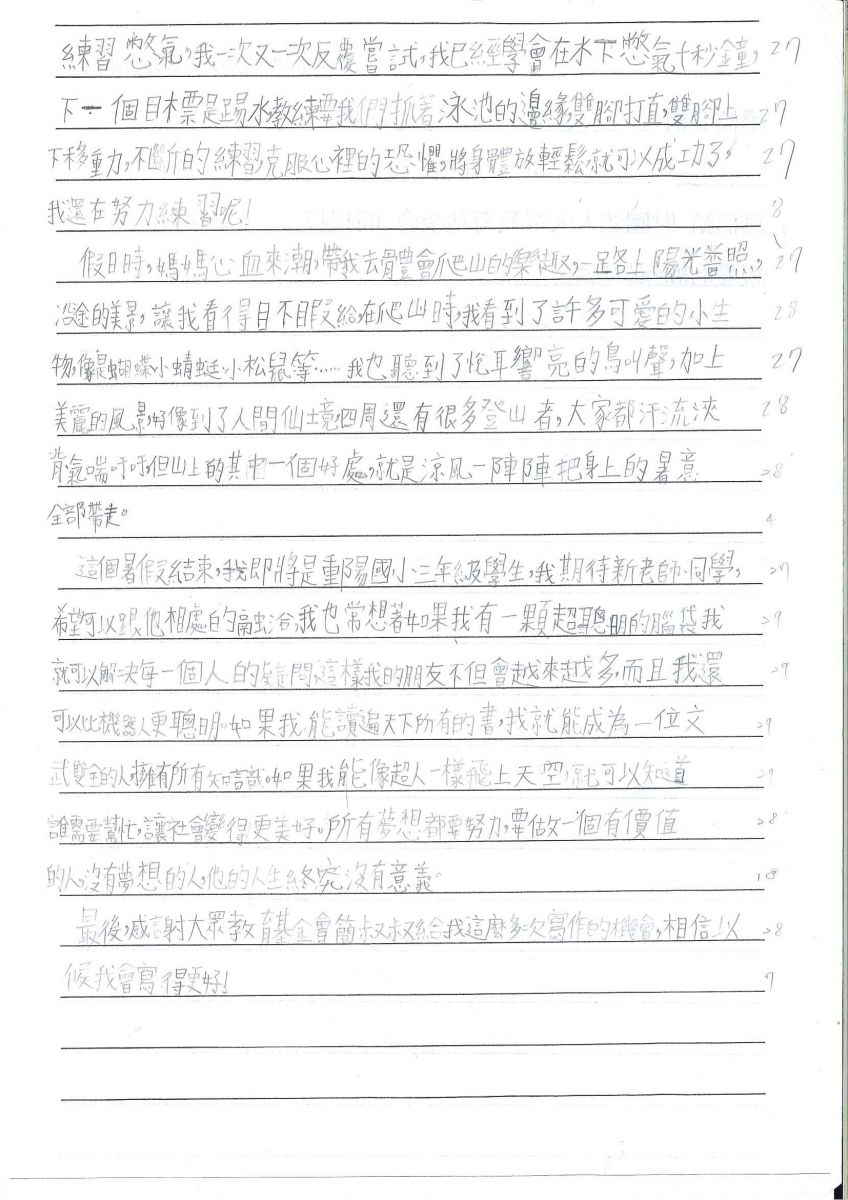 練習憋氣,我一次又一次反覆嘗試,我已經學會在水下憋氣十秒鐘, 27
下一個目標是踢水教練要我們抓著泳池的邊緣,雙腳打直,雙腳上 27
下移重力,不斷的練習,克服心裡的恐懼,將身體放輕鬆就可以成功了, 27
我還在努力練習呢! 8
假日時,媽媽心血來潮,帶我去體會爬山的樂趣,一路上陽光普照, 27
沿途的美景,讓我看得目不暇給,在爬山時,我看到了許多可愛的小生 28
物,像是蝴蝶、小蜻蜓、小松鼠等……我也聽到了悅耳響亮的鳥叫聲,加上 27
美麗的風景,好像到了人間仙境,四周還有很多登山者,大家都汗流浹 28
背,氣喘吁吁,但山上的其中一個好處,就是涼風一陣陣把身上的暑意 28
全部帶走。 4
這個暑假結束,我即將是重陽國小三年級學生,我期待新老師、同學, 27
希望可以跟他相處的融洽,我也常想著如果我有一顆超聰明的腦袋我 29
就可以解決每一個人的疑問,這樣我的朋友不但會越來越多,而且我還 29
可以比機器人更聰明。如果我能讀遍天下所有的書,我就能成為一位文 29
武雙全的人,擁有所有知識。如果我能像超人一樣飛上天空,就可以知道 29
誰需要幫忙,讓社會變得更美好。所有夢想都要努力,要做一個有價值 28
的人,沒有夢想的人,他的人生終究沒有意義。 18
最後,感謝大眾教育基金會簡叔叔給我這麼多次寫作的機會,相信以 28
候我會寫得更好! 7